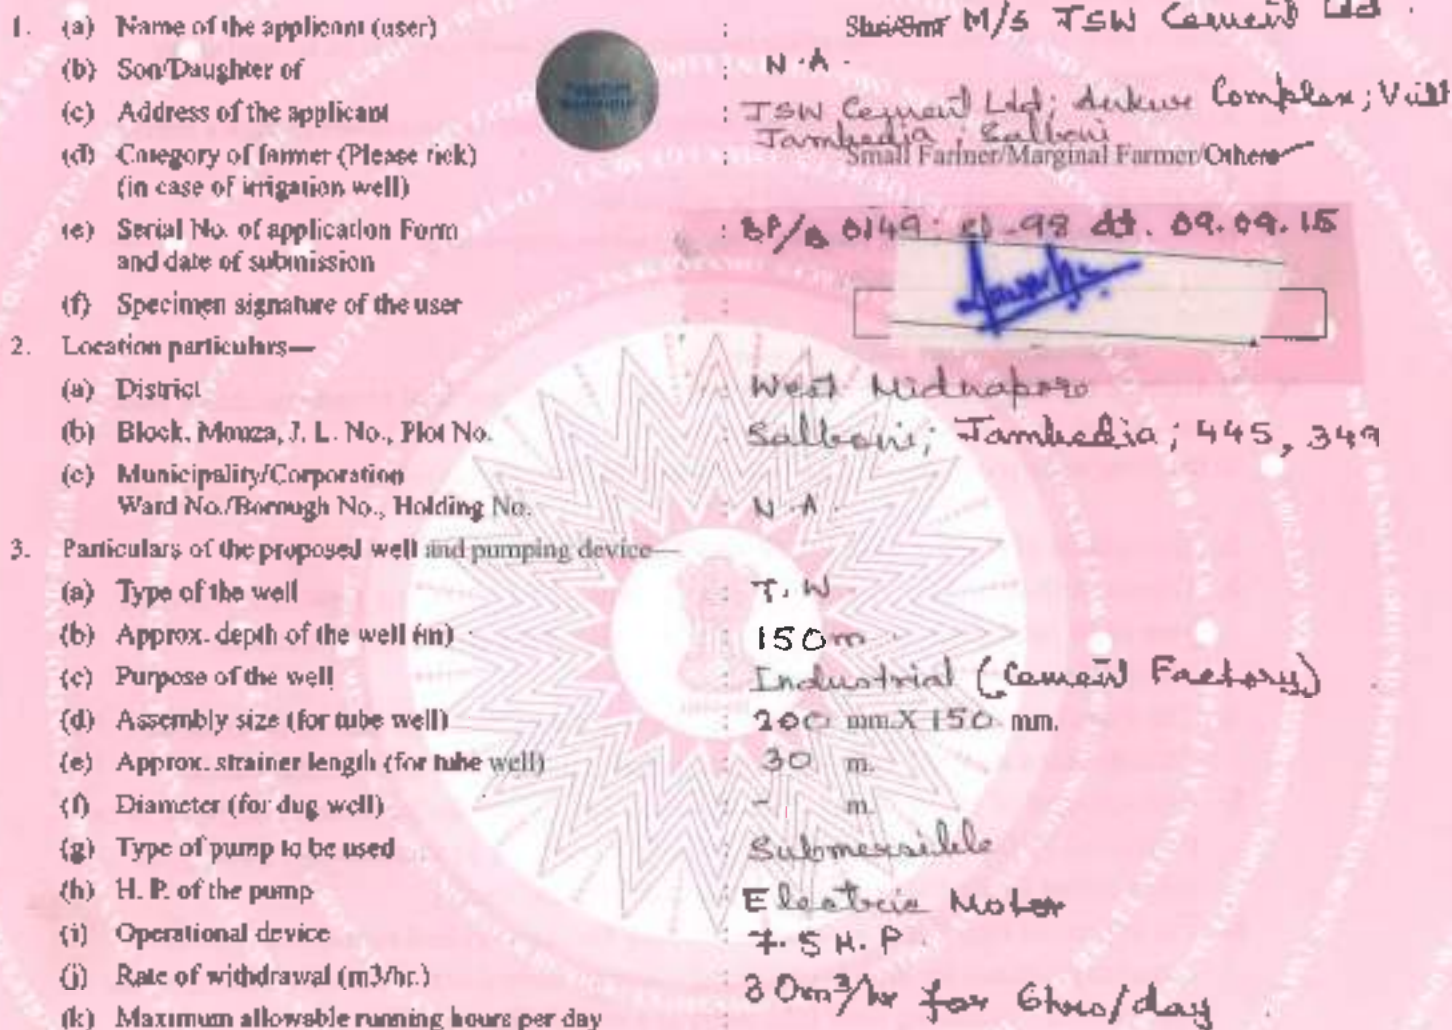 1. (a) Name of the applicant (user) : Shri/Smt M/s JSW Cement Ltd.
(b) Son/Daughter of : N.A.
(c) Address of the applicant : JSW Cement Ltd; Ankur Complex; Vill
Jambedia; Salboni
(d) Category of farmer (Please tick) : Small Farmer/Marginal Farmer/Others
(in case of irrigation well)
(e) Serial No. of application Form : BP/B 0149 98 dt. 09.09.15
and date of submission
(f) Specimen signature of the user :
2. Location particulars—
(a) District : West Midnapore
(b) Block, Mouza, J. L. No., Plot No. : Salboni; Jambedia; 445, 349
(c) Municipality/Corporation
Ward No./Borough No., Holding No. : N.A.
3. Particulars of the proposed well and pumping device—
(a) Type of the well : T.W
(b) Approx. depth of the well (m) : 150m
(c) Purpose of the well : Industrial (Cement Factory)
(d) Assembly size (for tube well) : 200 mm.X 150 mm.
(e) Approx. strainer length (for tube well) : 30 m.
(f) Diameter (for dug well) : - m.
(g) Type of pump to be used : Submersible
(h) H. P. of the pump : Electric Motor
(i) Operational device : 7.5 H.P.
(j) Rate of withdrawal (m3/hr.) : 30m³/hr for 6hrs/day
(k) Maximum allowable running hours per day